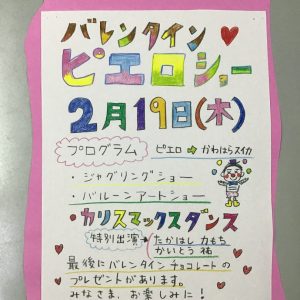 バレンタイン♥
ピエロショー
2月19日(木)
プログラム
ピエロ➡かわはらスイカ
・ジャグリングショー
・バルーンアートショー
・カリスマックスダンス
特別出演→たかはし力もち
かいとう祐
最後にバレンタインチョコレートの
プレゼントがあります。
みなさま、お楽しみに!